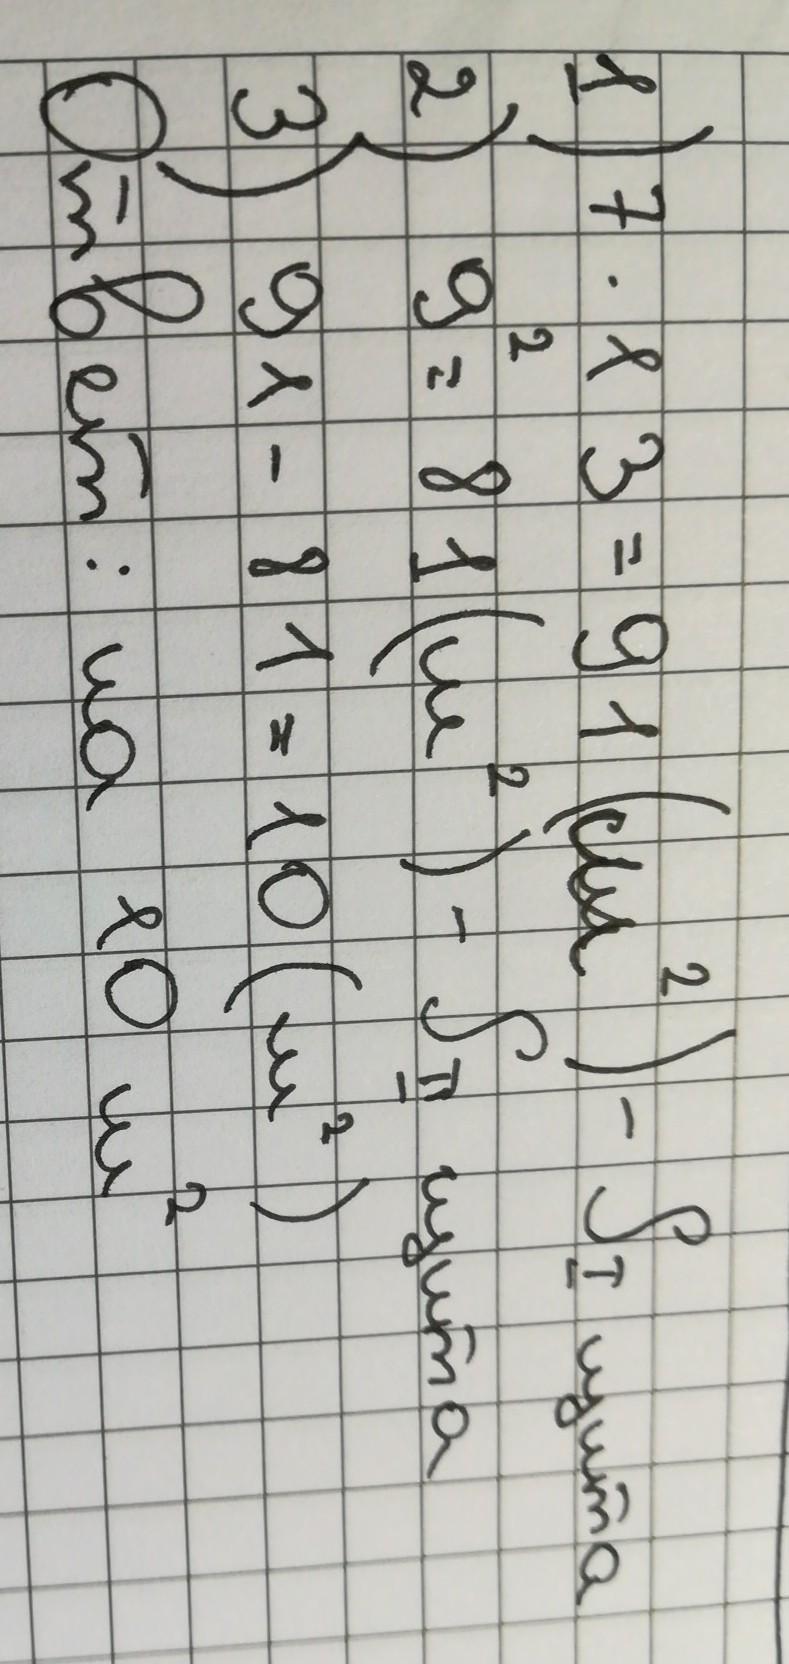 1) 7 · 13 = 91 (м²) – S I щита
2) 9² = 81 (м²) – S II щита
3) 91 – 81 = 10 (м²)
Ответ: на 10 м²